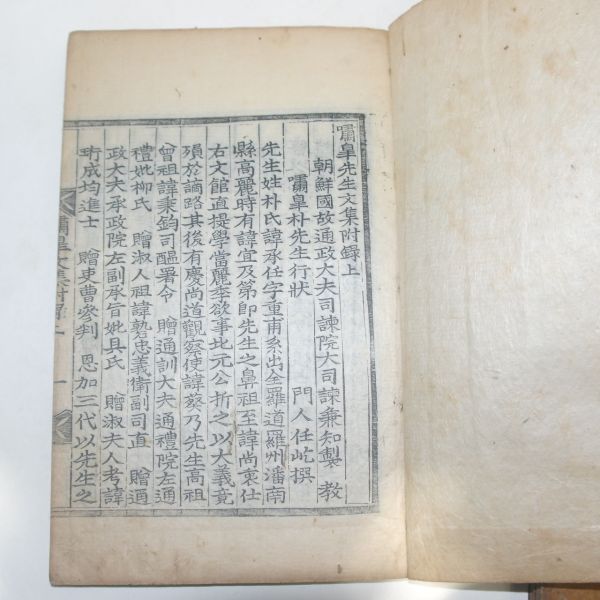 嘯皐先生文集附錄上
朝鮮國故通政大夫司諫院大司諫兼知製 教
嘯皐朴先生行狀 門人任屹撰
先生姓朴氏諱承任字重甫系出全羅道羅州潘南
縣高麗時有諱宜及第卽先生之鼻祖至諱尚衷仕
右文館直提學當麗季欲事北元公折之以大義竟
殞於謫路其後有慶尚道觀察使諱葵乃先生高祖
曾祖諱秉鈞司醞署令 贈通訓大夫通禮院左通
禮妣柳氏 贈淑人祖諱䃞忠義衛副司直 贈通
政大夫承政院左副承旨妣具氏 贈淑夫人考諱
珩成均進士 贈吏曹參判 恩加三代以先生之
嘯皐文集附錄上 一